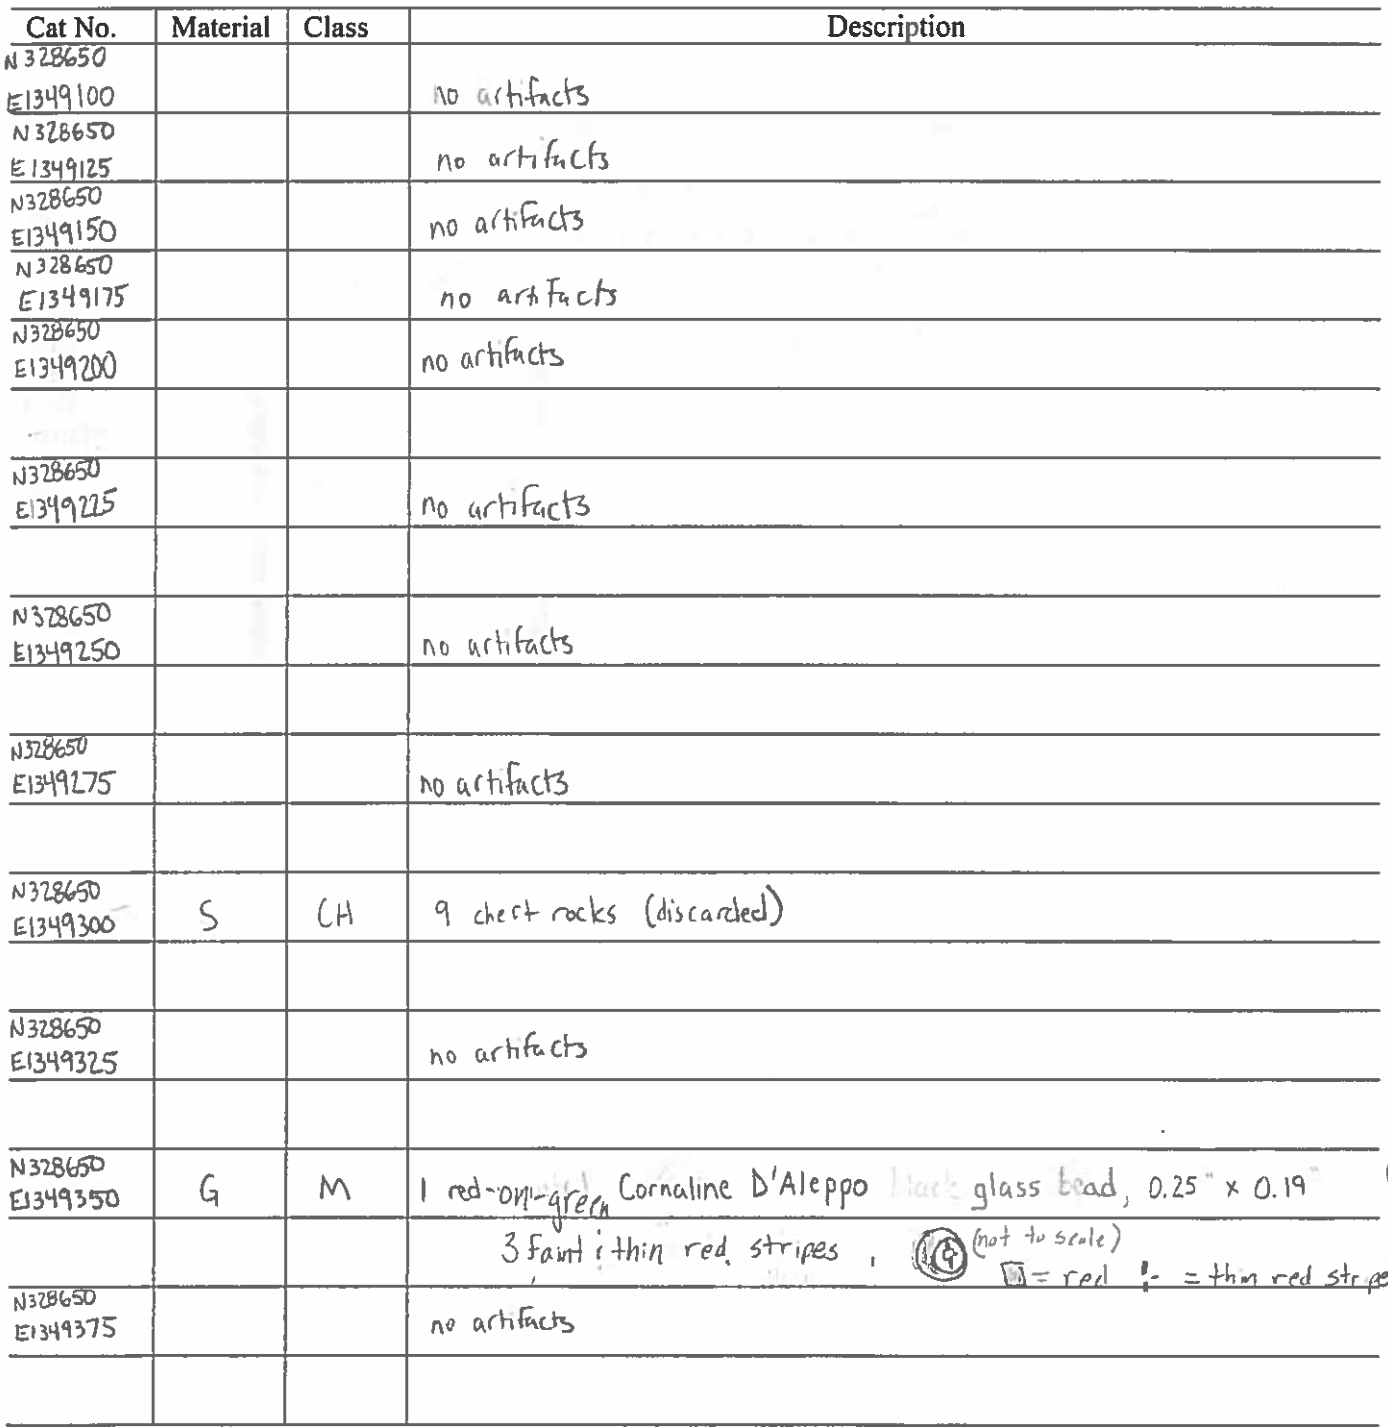 Cat No. Material Class Description
N328650
E1349100 no artifacts
N328650
E1349125 no artifacts
N328650
E1349150 no artifacts
N328650
E1349175 no artifacts
N328650
E1349200 no artifacts
N328650
E1349225 no artifacts
N328650
E1349250 no artifacts
N328650
E1349275 no artifacts
N328650
E1349300 S CH 9 chert rocks (discarded)
N328650
E1349325 no artifacts
N328650
E1349350 G M 1 red-on-green Cornaline D'Aleppo glass bead, 0.25" x 0.19"
3 faint & thin red stripes, (not to scale)
= red = thin red stripe
N328650
E1349375 no artifacts